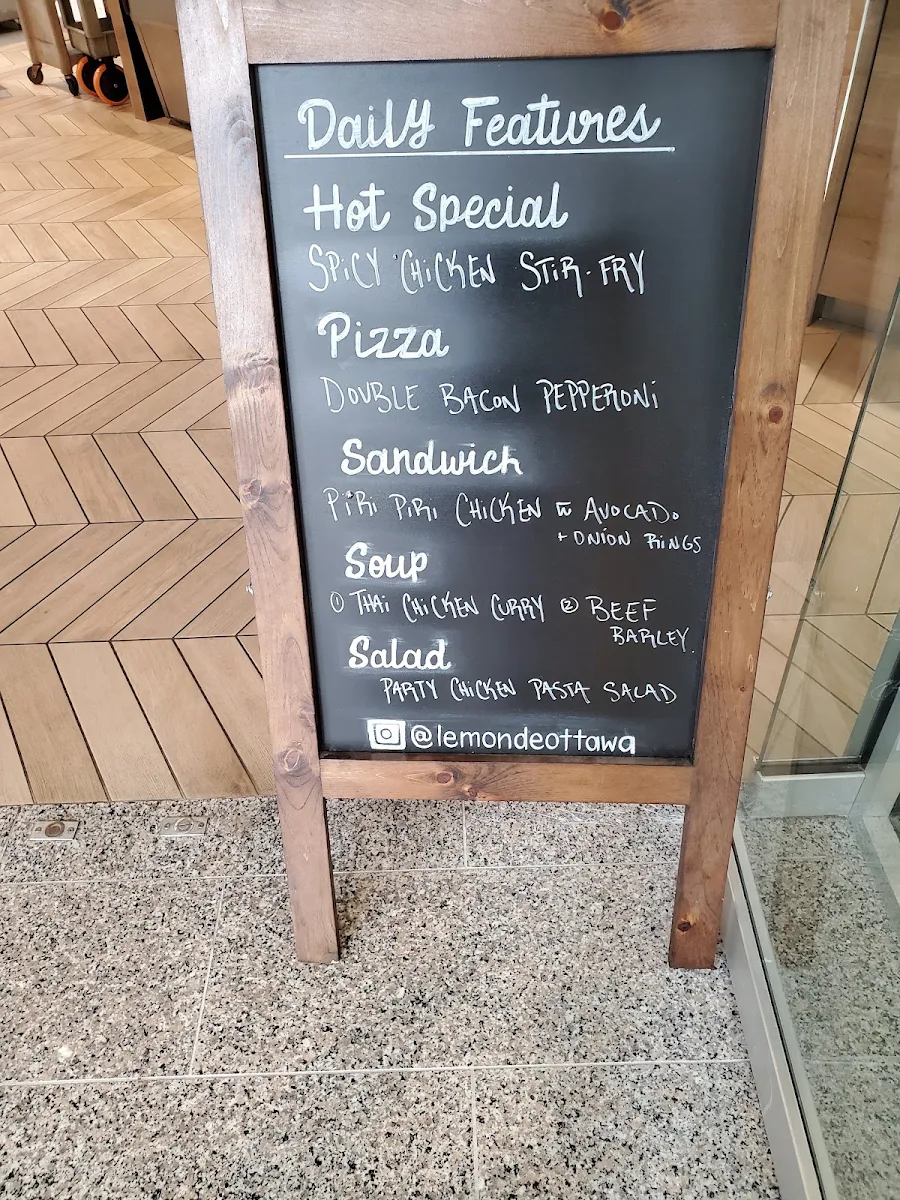 Daily Features
Hot Special
SPiCY CHiCKEN STiR-FRY
Pizza
DOUBLE BACON PEPPERONi
Sandwich
PiRi PiRi CHiCKEN w AVOCADO
+ ONION RiNGS
Soup
① THAi CHiCKEN CURRY ② BEEF
BARLEY
Salad
PARTY CHiCKEN PASTA SALAD
@lemondeottawa